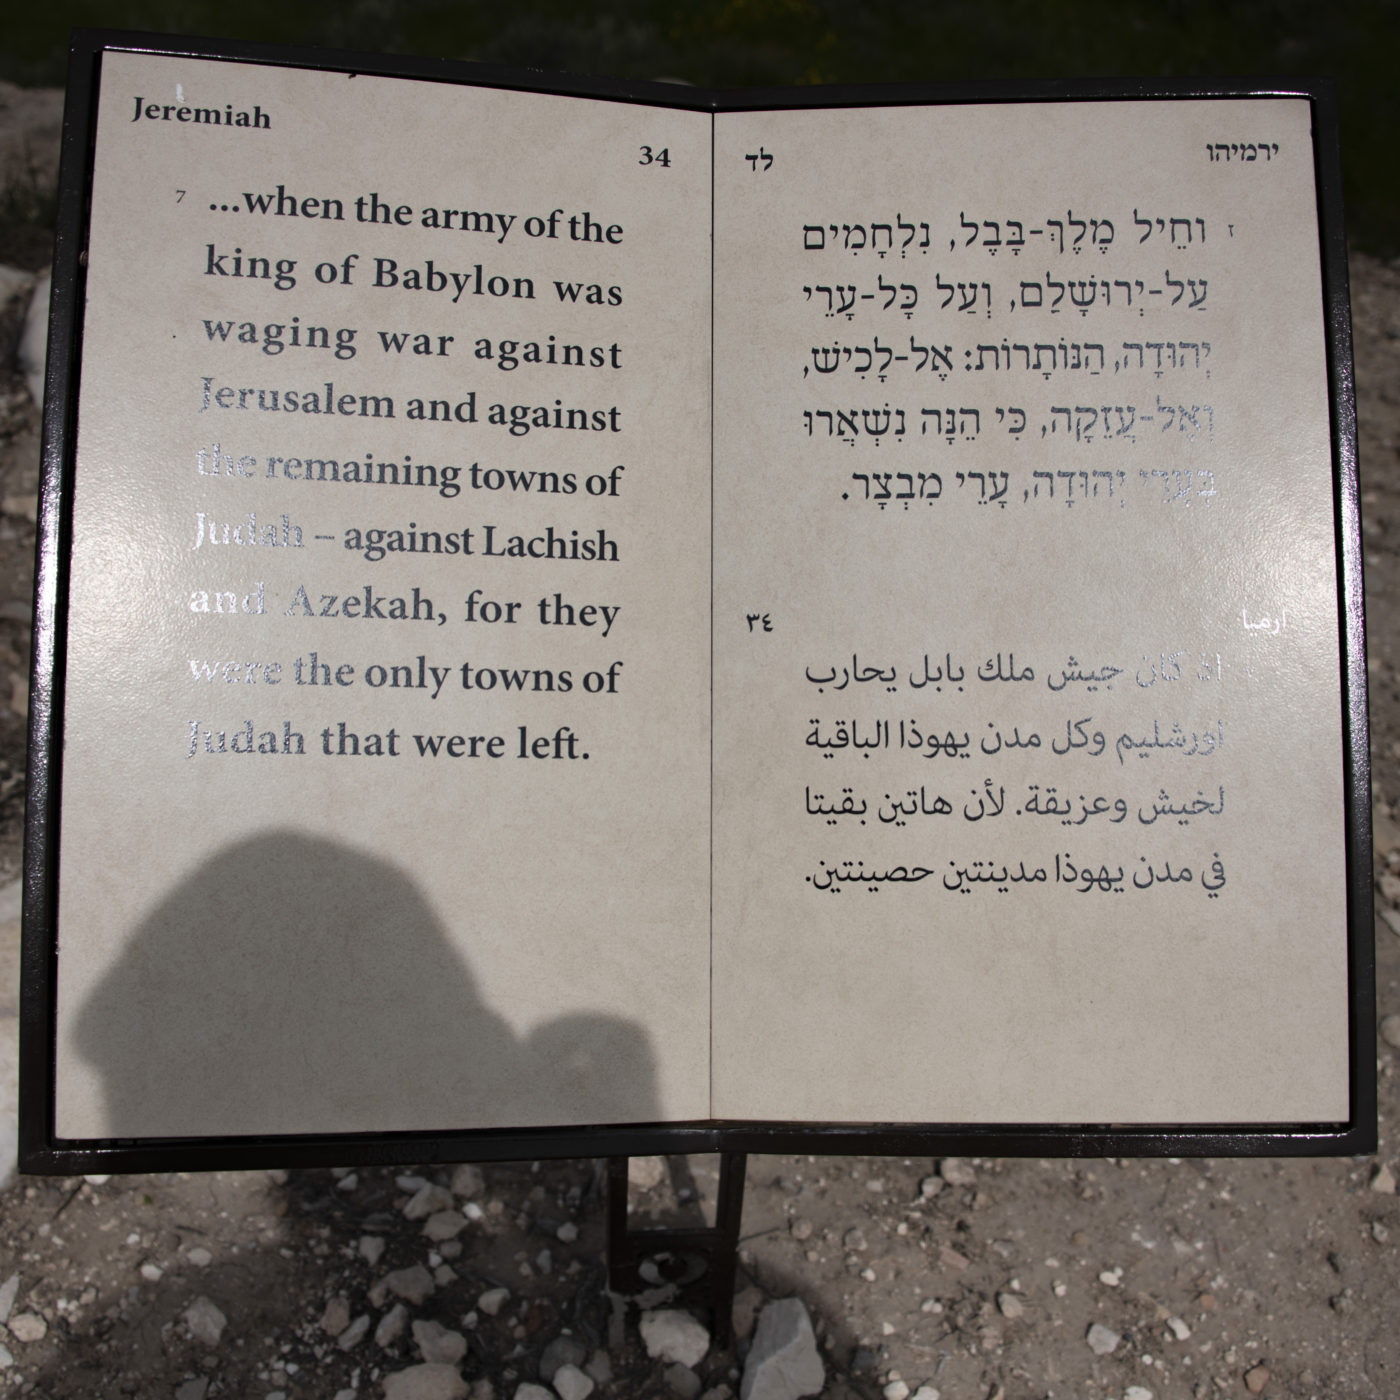 Jeremiah
34
7 ...when the army of the
king of Babylon was
waging war against
Jerusalem and against
the remaining towns of
Judah – against Lachish
and Azekah, for they
were the only towns of
Judah that were left.
ירמיהו
לד
ז וְחֵיל מֶלֶךְ-בָּבֶל, נִלְחָמִים
עַל-יְרוּשָׁלִַם, וְעַל כָּל-עָרֵי
יְהוּדָה, הַנּוֹתָרוֹת: אֶל-לָכִישׁ,
וְאֶל-עֲזֵקָה, כִּי הֵנָּה נִשְׁאֲרוּ
בְּעָרֵי יְהוּדָה, עָרֵי מִבְצָר.
ارميا
٣٤
اذ كان جيش ملك بابل يحارب
اورشليم وكل مدن يهوذا الباقية
لخيش وعزيقة. لأن هاتين بقيتا
في مدن يهوذا مدينتين حصينتين.